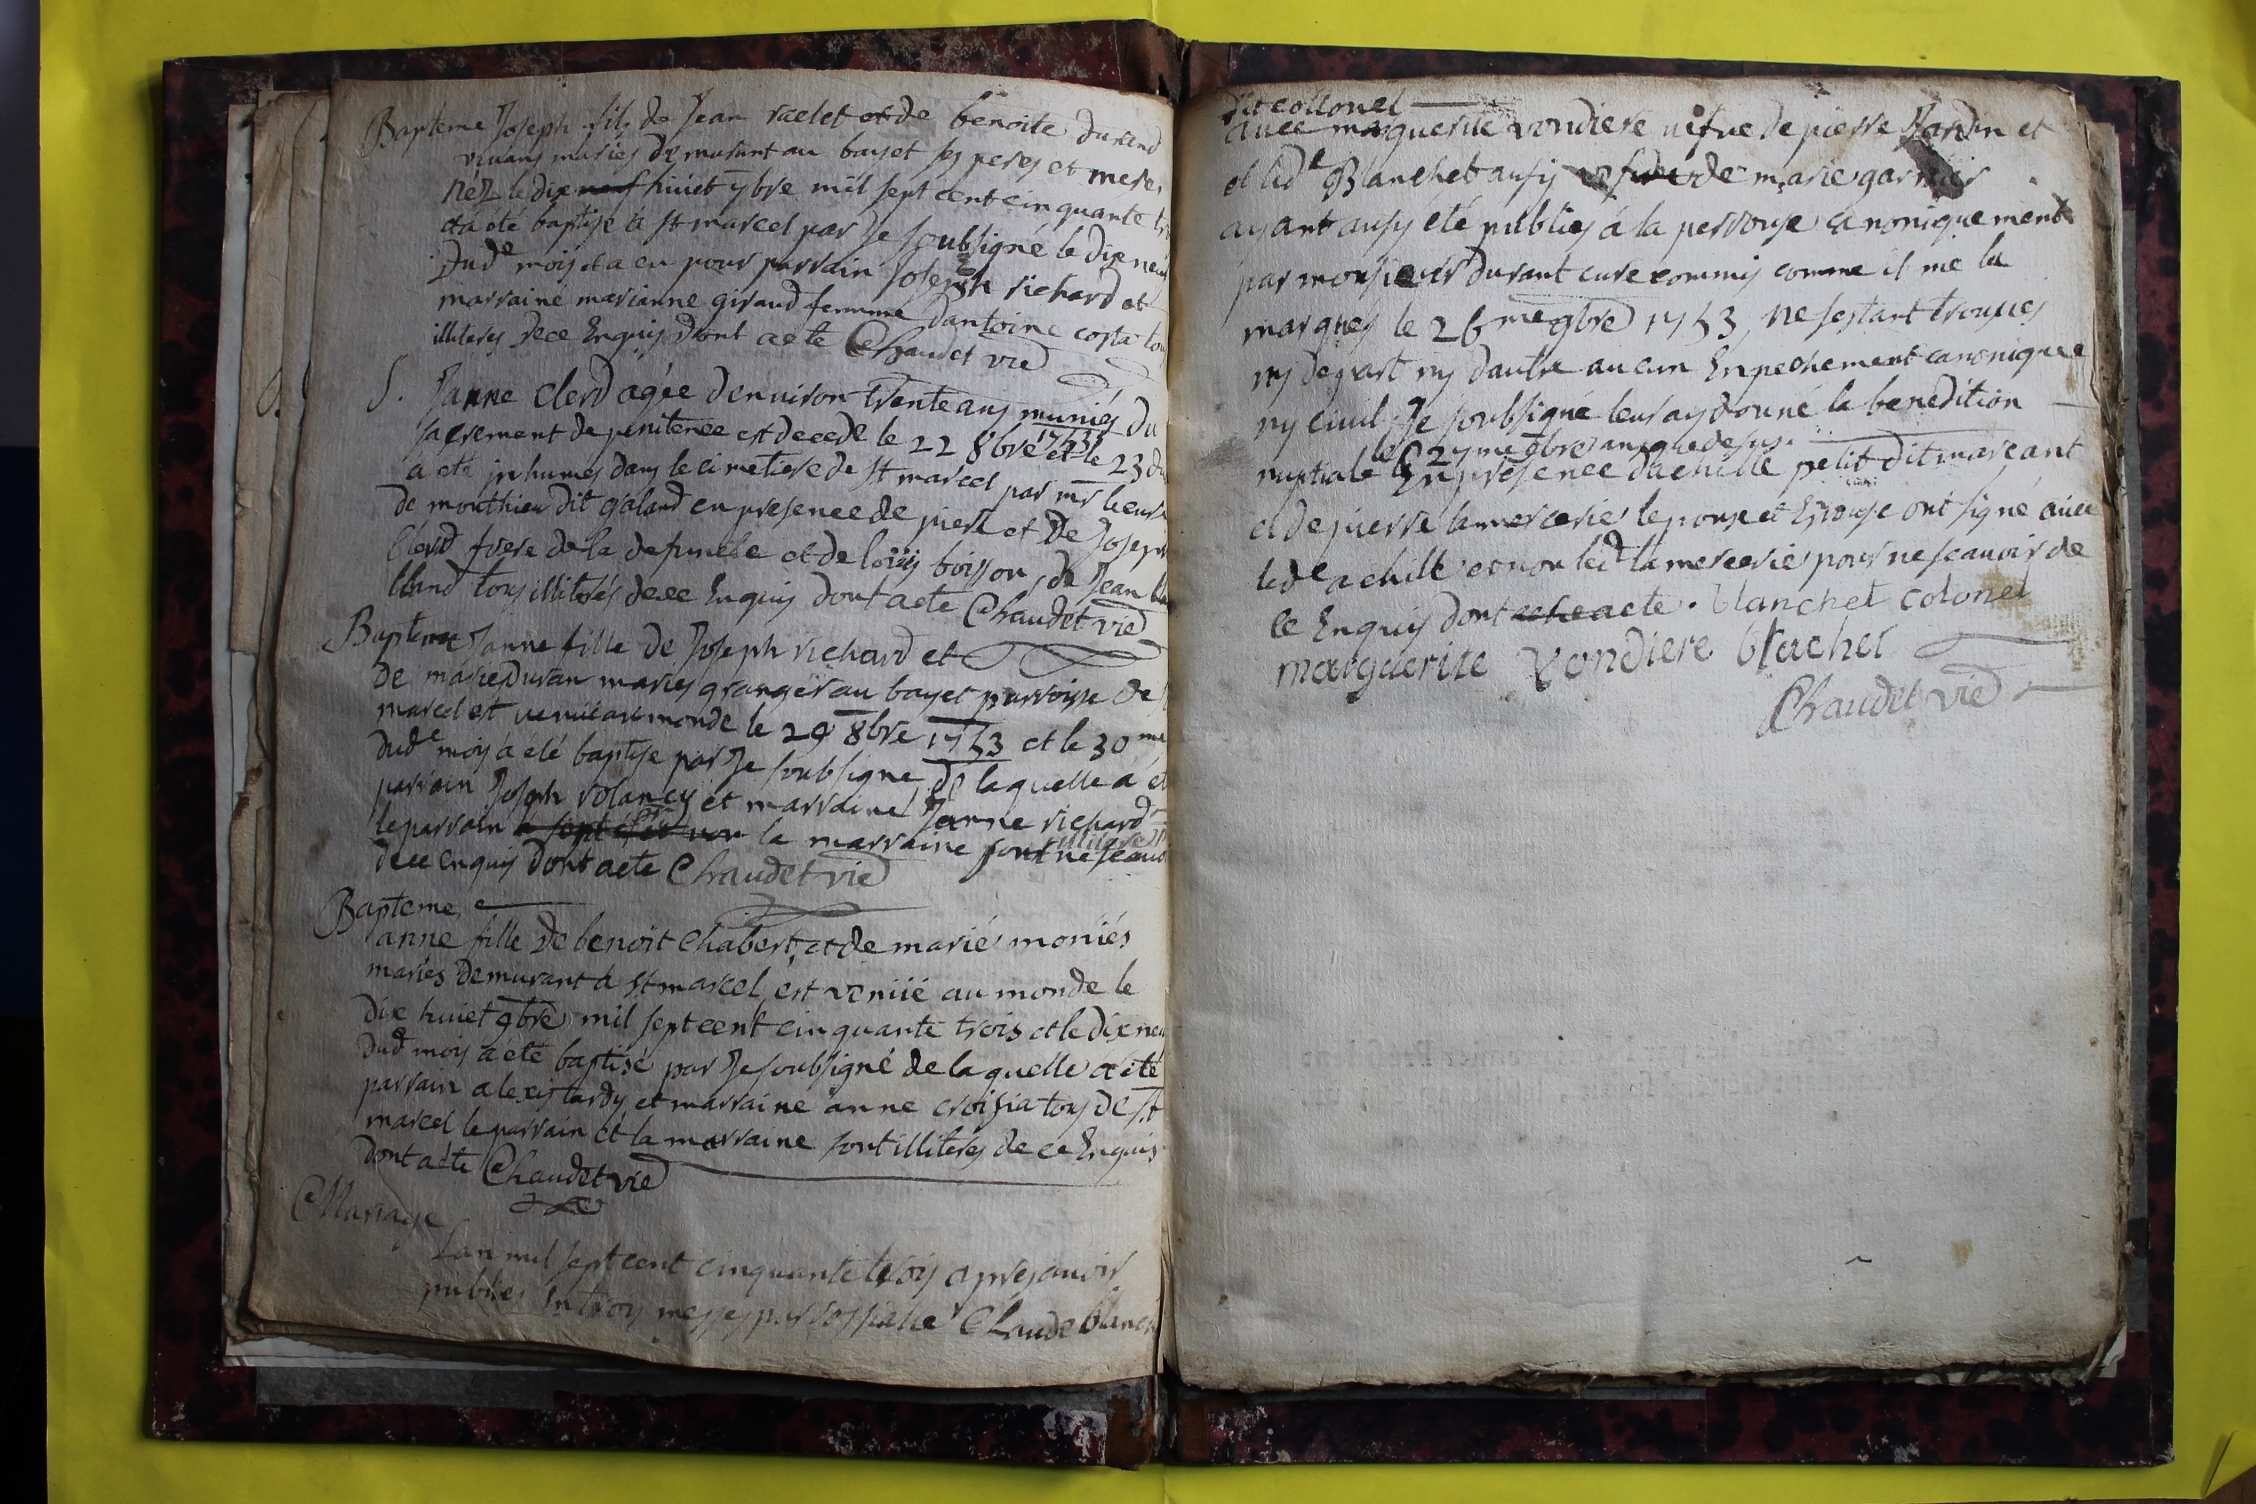 Bapteme Joseph fils de Jean raclet et de benoite durand
vivans mariés demurant au bayet ses peres et mere
néz le dix neuf huiet 7bre mil sept cent cinquante tr
et a eté baptise a st marcel par Je soubsigné le dix neuf
Dude mois et a eu pour parrain Joseph richard et
marraine marianne giraud femme dantoine costa tou
illiteres de ce Enquis dont acte Chaudet vic
S. Janne Clerd agée denuiron trente ans muniés du
sacrement de penitence est decede le 22 8bre 1753 et le 23 du
a eté inhumés dans le cimetiere de st marcel par mr le curé
de monthieu dit galand en presence de piere et de Joseph
Clerd frere de la defuncte et de loüis boisson, de Jean bla
bland tous illiterés de ce Enquis dont acte Chaudet vic
Bapteme Janne fille de Joseph richard et
de marie duran mariés granger au bayet parroisse de s
marcel est venüe au monde le 29 8bre 1753 et le 30me
dude mois a été baptise par Je soubsigne, de laquelle a et
parrain Joseph rolancy et marraine Janne richard
le parrain la marraine sont illiteré ne scauo
de ce enquis dont acte Chaudet vic
Bapteme
Janne fille de benoit Chabert, et de marie moniés
mariés demurant a st marcel, est veniie au monde le
dix huiet 9bre mil sept cent cinquante trois et le dix neu
dud mois a été baptisé par Je soubsigné de laquelle a eté
parrain alexis tardy et marraine anne croizia tous de st
marcel le parrain et la marraine sont illiterés de ce Enquis
dont acte Chaudet vic
Mariage
Lan mil sept cent cinquante trois apres auoir
publies en trois messes parrossialle Claude blanch
dit collonel
auec marguerite vondiere vefue de pierre Jardin et
et led Blanchet ausy de marie garnier
ayant ausy eté publies á la perrouse canoniquement
par monsieur durant cure commis comme il me la
marques le 26me 9bre 1753, ne sestant trouues
ny depart ny dautre aucun Enpechement canonique
ny ciuil, Je soubsigné leur ay donné la benedition
le 27me 9bre an que desus
nuptiale En presence dachille petit dit marcant
et de pierre lamercerie lepoux et Epouse ont signé auec
lede achille et non led lamercerie pour ne scauoir de
ce Enquis dont acte acte. blanchet colonel
marguerite vondiere blachet
Chaudet vic